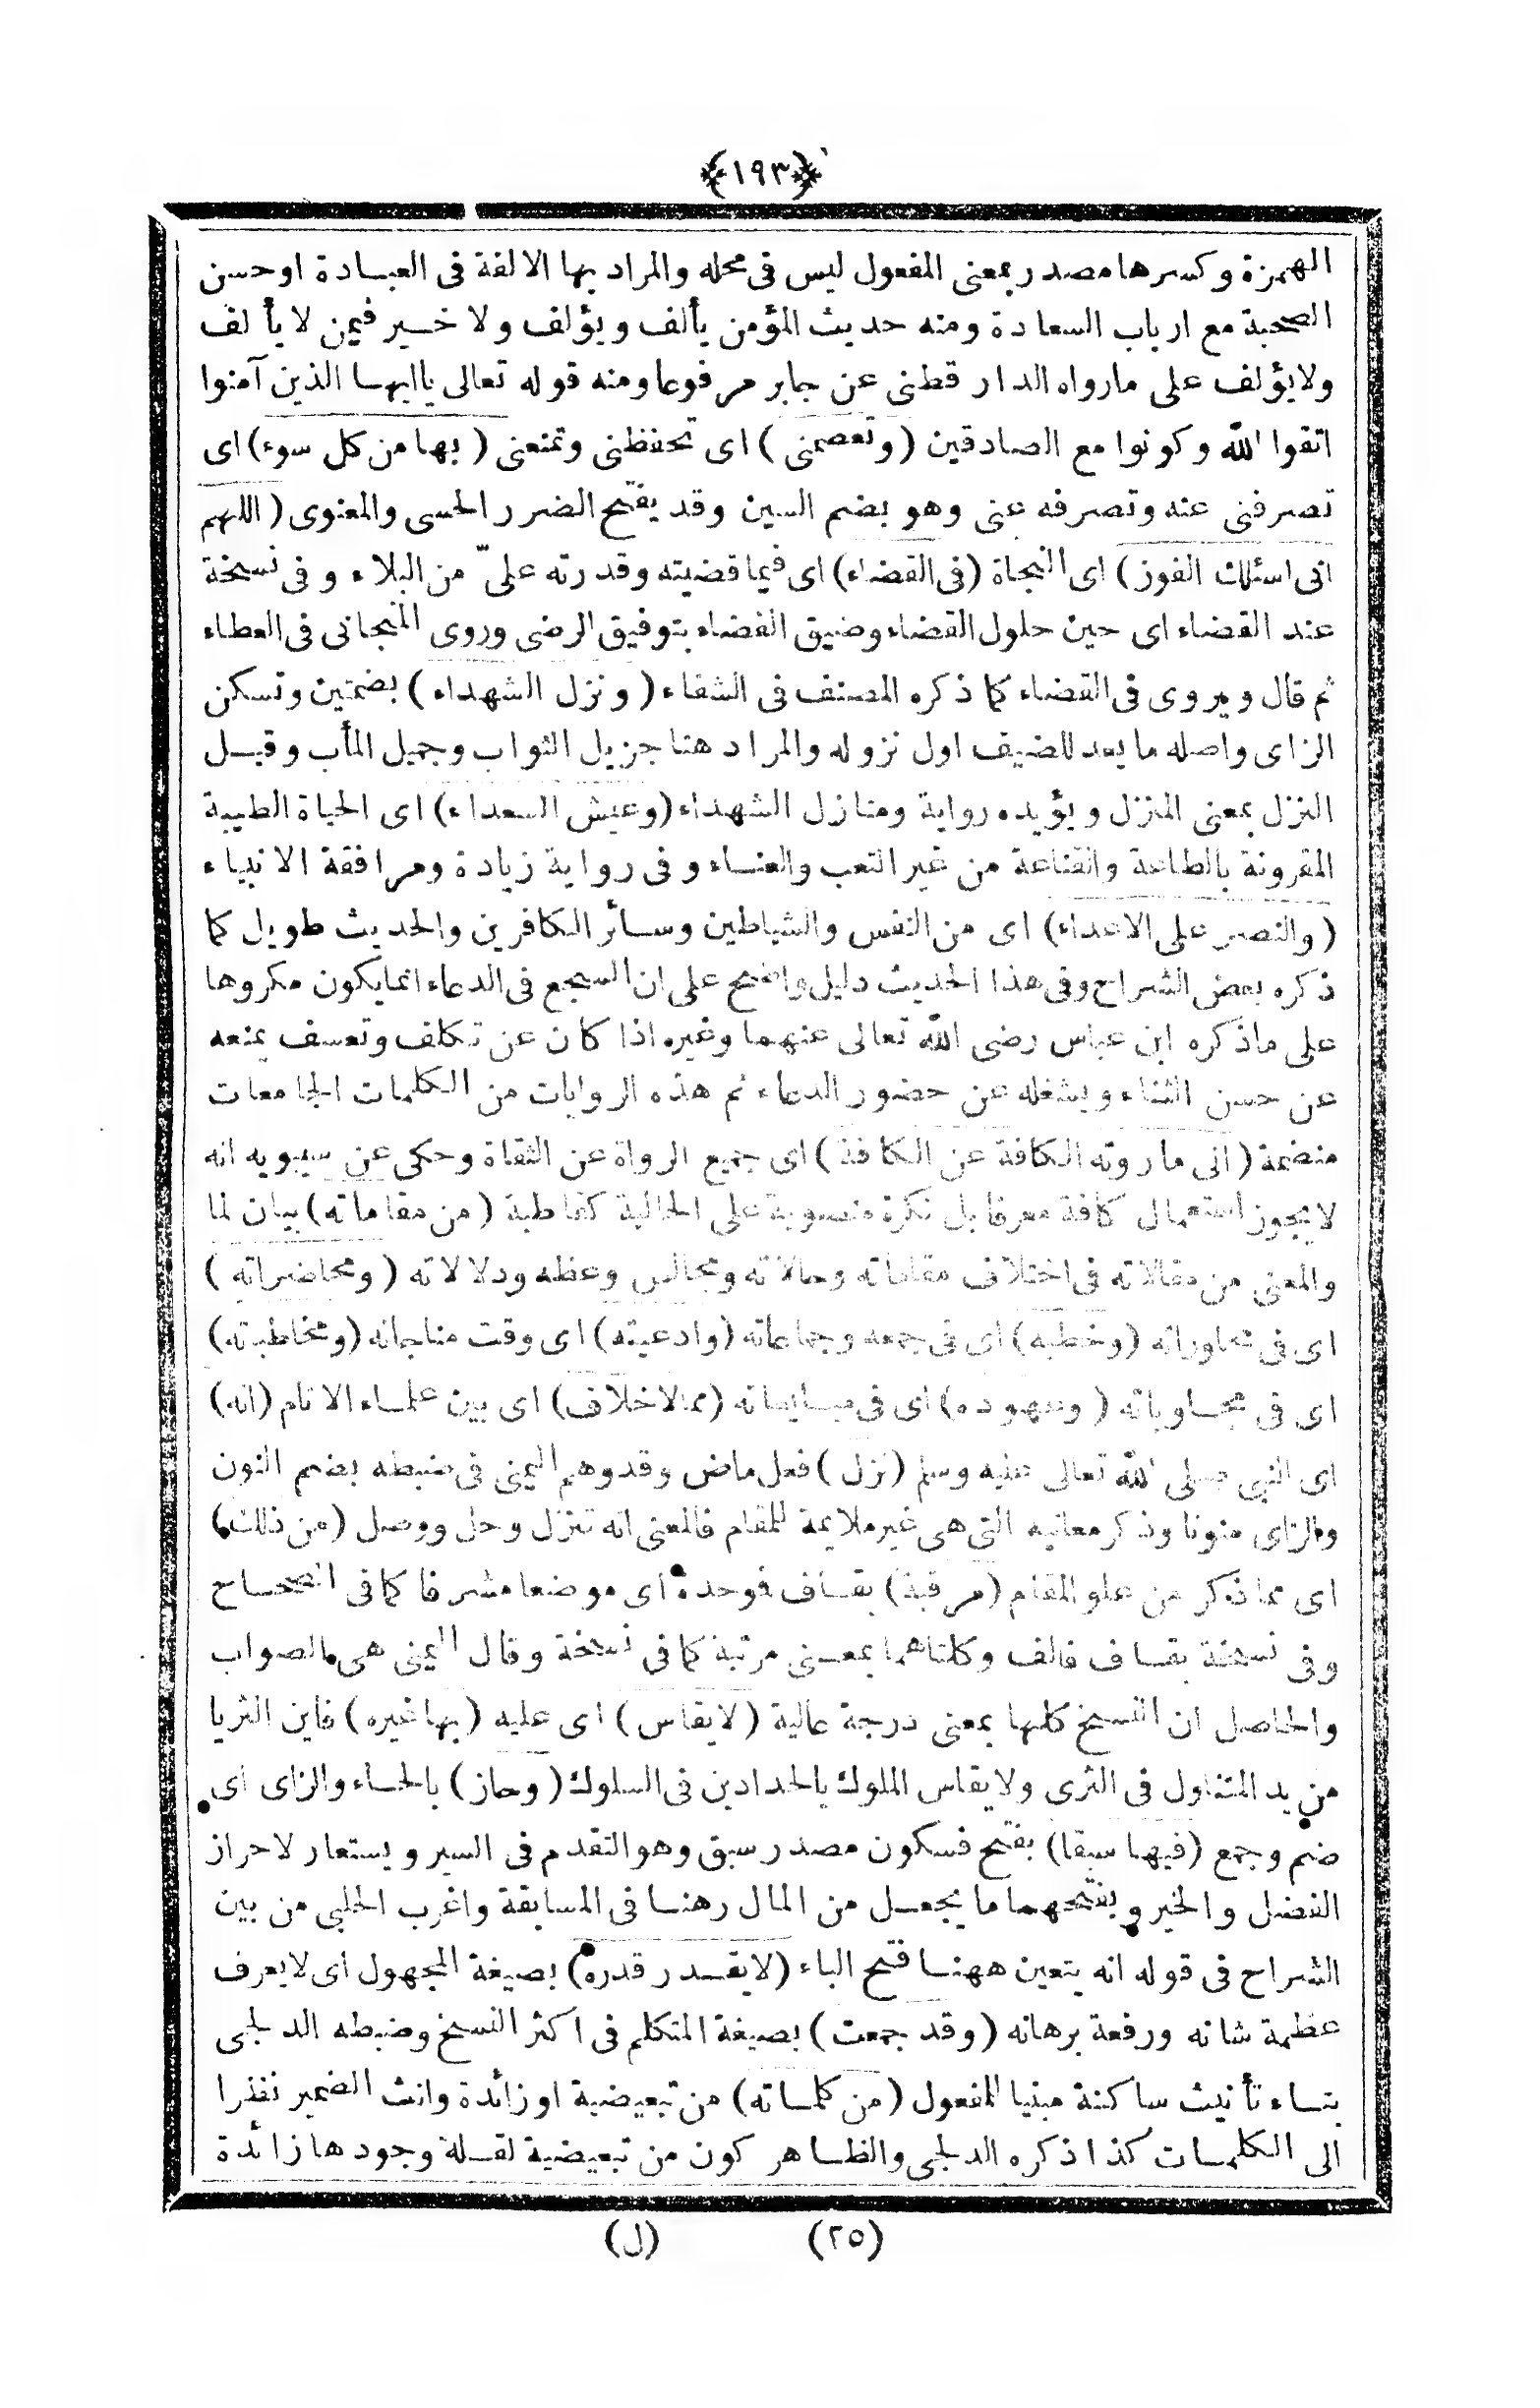 ﴿١٩٣﴾
الهمزة وكسرها مصدر بمعنى المفعول ليس فى محله والمراد بها الالفة فى العبادة او حسن
الصحبة مع ارباب السعادة ومنه حديث المؤمن يألف ويؤلف ولا خير فيمن لا يألف
ولا يؤلف على ما رواه الدار قطنى عن جابر مرفوعا ومنه قوله تعالى يا ايها الذين آمنوا
اتقوا الله وكونوا مع الصادقين (وتعصمنى) اى تحفظنى وتمنعنى (بها من كل سوء) اى
تصرفنى عنه وتصرفه عنى وهو بضم السين وقد يفتح الضرر الحسى والمعنوى (اللهم
انى اسئلك الفوز) اى النجاة (فى القضاء) اى فيما قضيته وقدرته علىّ من البلاء وفى نسخة
عند القضاء اى حين حلول القضاء وضيق الفضاء بتوفيق الرضى وروى المنجانى فى العطاء
ثم قال ويروى فى القضاء كما ذكره المصنف فى الشفاء (ونزل الشهداء) بضمتين وتسكن
الزاى واصله ما يعد للضيف اول نزوله والمراد هنا جزيل الثواب وجميل المأب وقيل
النزل بمعنى المنزل ويؤيده رواية ومنازل الشهداء (وعيش السعداء) اى الحياة الطيبة
المقرونة بالطاعة والقناعة من غير التعب والعناء وفى رواية زيادة ومرافقة الانبياء
(والنصر على الاعداء) اى من النفس والشياطين وسائر الكافرين والحديث طويل كما
ذكره بعض الشراح وفى هذا الحديث دليل واضح على ان السجع فى الدعاء انما يكون مكروها
على ما ذكره ابن عباس رضى الله تعالى عنهما وغيره اذا كان عن تكلف وتعسف يمنعه
عن حسن الثناء ويشغله عن حضور الدعاء ثم هذه الروايات من الكلمات الجامعات
منضمة (الى ما روته الكافة عن الكافة) اى جميع الرواة عن الثقاة وحكى عن سيبويه انه
لا يجوز استعمال كافة معرفا بل نكرة منصوبة على الحالية كقاطبة (من مقاماته) بيان لما
والمعنى من مقالاته فى اختلاف مقاماته وحالاته ومجالس وعظه ودلالاته (ومحاضراته)
اى فى محاوراته (وخطبه) اى فى جمعه وجماعاته (وادعيته) اى وقت مناجاته (ومخاطبته)
اى فى مجاوباته (وعهوده) اى فى مبايعاته (مما لا خلاف) اى بين علماء الانام (انه)
اى النبى صلى الله تعالى عليه وسلم (نزل) فعل ماض وقد وهم اليمنى فى ضبطه بضم النون
والزاى منونا وذكر معانيه التى هى غير ملايمة للمقام فالمعنى انه تنزل وحل ووصل (من ذلك)
اى مما ذكر من علو المقام (مرقبة) بقاف فوحدة اى موضعا مشرفا كما فى الصحاح
وفى نسخة بقاف فالف وكلتاهما بمعنى مرتبة كما فى نسخة وقال اليمنى هى الصواب
والحاصل ان النسخ كلها بمعنى درجة عالية (لا يقاس) اى عليه (بها غيره) فاين الثريا
من يد المتناول فى الثرى ولا يقاس الملوك بالحدادين فى السلوك (وحاز) بالحاء والزاى اى
ضم وجمع (فيها سبقا) بفتح فسكون مصدر سبق وهو التقدم فى السير ويستعار لاحراز
الفضل والخير وبفتحهما ما يجعل من المال رهنا فى المسابقة واغرب الحلبى من بين
الشراح فى قوله انه يتعين ههنا فتح الباء (لا يقدر قدره) بصيغة المجهول اى لا يعرف
عظمة شانه ورفعة برهانه (وقد جمعت) بصيغة المتكلم فى اكثر النسخ وضبطه الدلجى
بتاء تأنيث ساكنة مبنيا للمفعول (من كلماته) من تبعيضية او زائدة وانث الضمير نظرا
الى الكلمات كذا ذكره الدلجى والظاهر كون من تبعيضية لقلة وجودها زائدة
(٢٥) (ل)